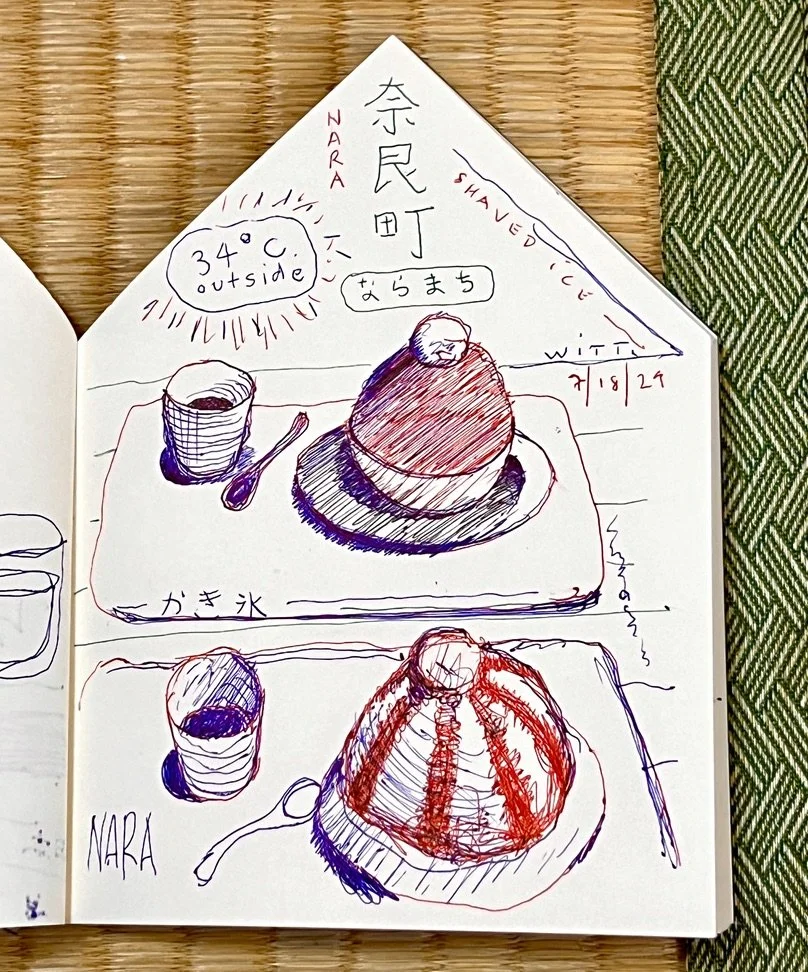 奈良町
NARA
SHAVED ICE
34° C.
outside
ならまち
WITT.
7/18/24
かき氷
NARA